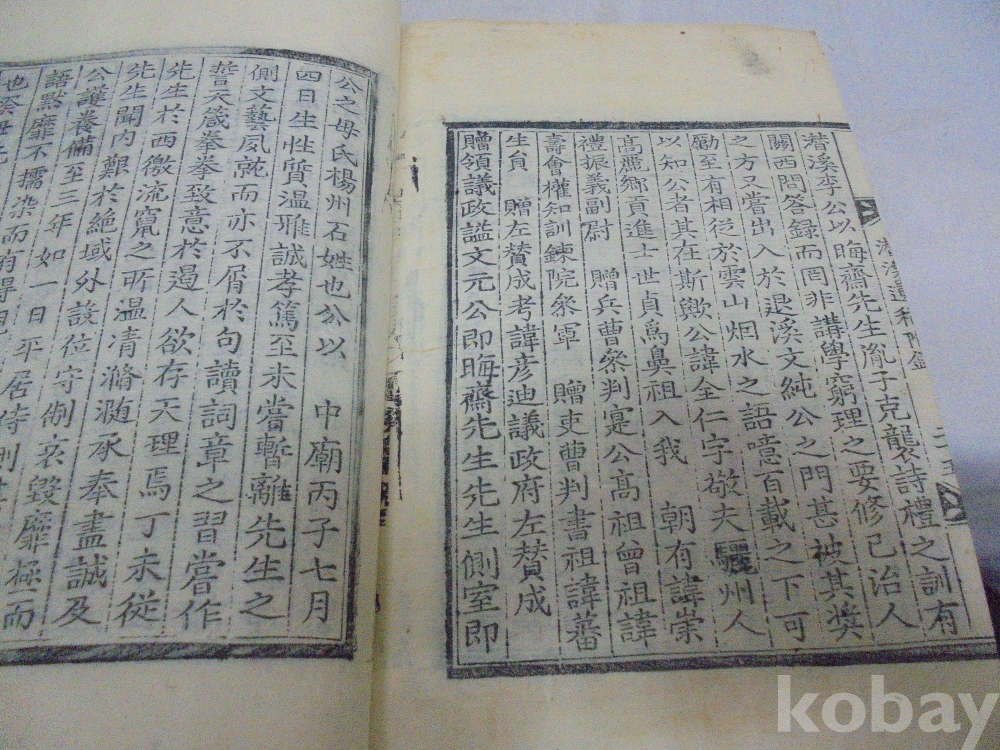 潛溪李公以晦齋先生胤子克襲詩禮之訓有
關西問答錄而罔非講學窮理之要修己治人
之方又嘗出入於退溪文純公之門甚被其奬
勵至有相從於雲山烟水之語噫百載之下可
以知公者其在斯歟公諱全仁字敬夫驪州人
高麗鄕貢進士世貞爲鼻祖入我 朝有諱崇
禮振義副尉 贈兵曹參判寔公高祖曾祖諱
壽會權知訓鍊院參軍 贈吏曹判書祖諱蕃
生員 贈左賛成考諱彦迪議政府左賛成
贈領議政謚文元公卽晦齋先生先生側室卽
公之母氏楊州石姓也公以 中廟丙子七月
四日生性質温雅誠孝篤至未嘗暫離先生之
側文藝夙就而亦不屑於句讀詞章之習嘗作
誓天箴拳拳致意於遏人欲存天理焉丁未從
先生於西徼流竄之所温凊滫瀡承奉盡誠及
先生聞內艱於絶域外設位守制哀毁靡極而
公護養備至三年如一日平居侍側
語默靡不擩染而有得
也癸丑先
kobay